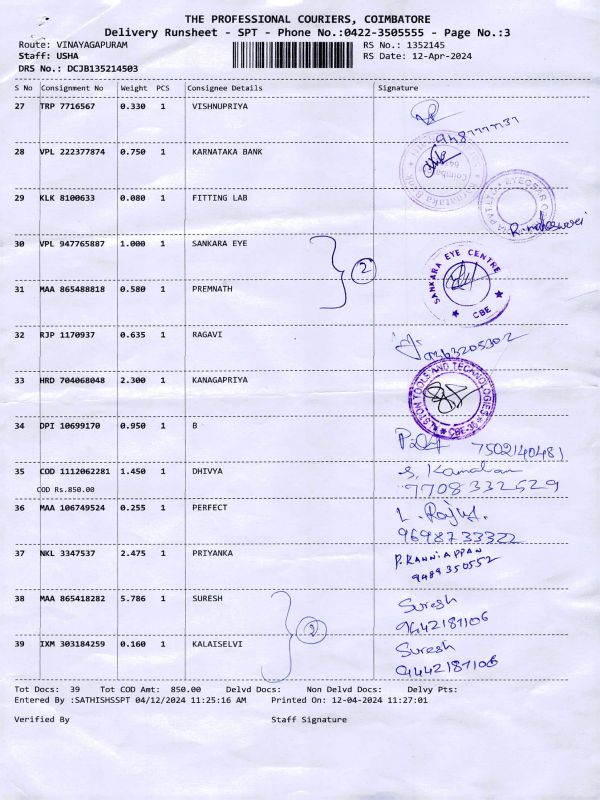 THE PROFESSIONAL COURIERS, COIMBATORE
Delivery Runsheet - SPT - Phone No.:0422-3505555 - Page No.:3
Route: VINAYAGAPURAM RS No.: 1352145
Staff: USHA RS Date: 12-Apr-2024
DRS No.: DCJB135214503
S No Consignment No Weight PCS Consignee Details Signature
27 TRP 7716567 0.330 1 VISHNUPRIYA
28 VPL 222377874 0.750 1 KARNATAKA BANK
29 KLK 8100633 0.080 1 FITTING LAB
R.maheswari
30 VPL 947765887 1.000 1 SANKARA EYE
2
SANKARA EYE CENTRE
CBE
31 MAA 865488818 0.580 1 PREMNATH
32 RJP 1170937 0.635 1 RAGAVI
33 HRD 704068048 2.300 1 KANAGAPRIYA
TOOLS AND TECHNOLOGIES
34 DPI 10699170 0.950 1 B
7502140481
35 COD 1112062281 1.450 1 DHIVYA
S. Kamalan
COD Rs.850.00
9708332529
36 MAA 106749524 0.255 1 PERFECT
9698733322
37 NKL 3347537 2.475 1 PRIYANKA
P. KANNIAPPAN
9489350552
38 MAA 865418282 5.786 1 SURESH
Suresh
9442187106
2
39 IXM 303184259 0.160 1 KALAISELVI
Suresh
9442187106
Tot Docs: 39 Tot COD Amt: 850.00 Delvd Docs: Non Delvd Docs: Delvy Pts:
Entered By :SATHISHSSPT 04/12/2024 11:25:16 AM Printed On: 12-04-2024 11:27:01
Verified By Staff Signature